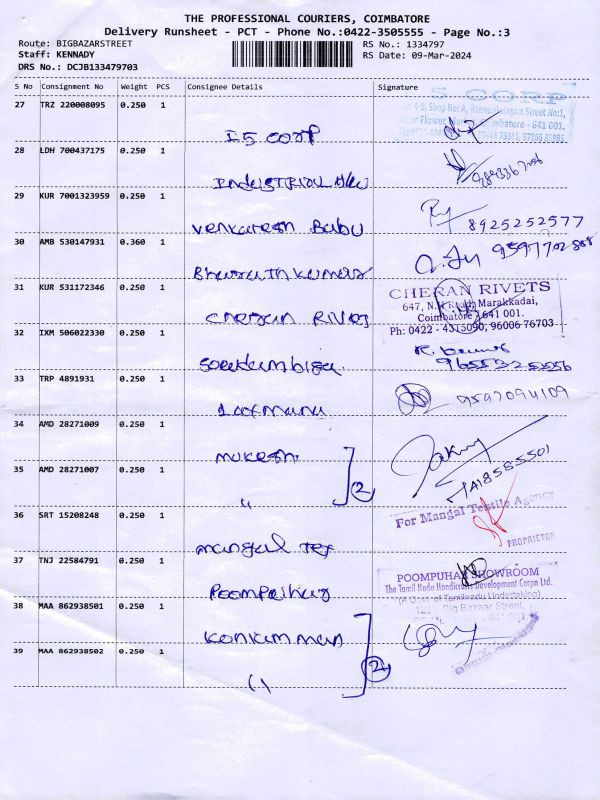 THE PROFESSIONAL COURIERS, COIMBATORE
Delivery Runsheet - PCT - Phone No.:0422-3505555 - Page No.:3
Route: BIGBAZARSTREET
RS No.: 1334797
Staff: KENNADY
RS Date: 09-Mar-2024
DRS No.: DCJB133479703
S No Consignment No Weight PCS Consignee Details Signature
27 TRZ 220008095 0.250 1
I5 CORP
S CORP
28 LDH 700437175 0.250 1
Industrial
29 KUR 7001323959 0.250 1
Venkatesh Babu
8925252577
30 AMB 530147931 0.360 1
Bharath Kumar
31 KUR 531172346 0.250 1
Cheran Rivet
CHERAN RIVETS
Marakkadai,
Coimbatore 641 001.
Ph: 0422 - 4315090, 96006 76703
32 IXM 506022330 0.250 1
33 TRP 4891931 0.250 1
Laxmana
9597094109
34 AMD 28271009 0.250 1
Mukesh
35 AMD 28271007 0.250 1
"
2
36 SRT 15208248 0.250 1
Mangal Tex
For Mangal Textile Agency
PROPRIETOR
37 TNJ 22584791 0.250 1
Poompuhar
POOMPUHAR SHOWROOM
The Tamil Nadu Handicrafts Development Corpn Ltd.
(A Govt. of Tamilnadu Undertaking)
Big Bazaar Street,
38 MAA 862938501 0.250 1
39 MAA 862938502 0.250 1
"
2